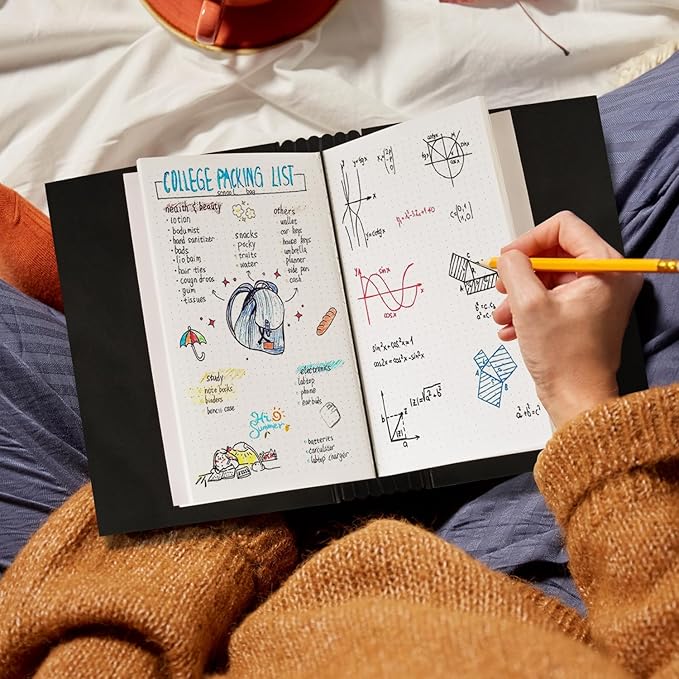 COLLEGE PACKING LIST
school bag
health & beauty
lotion
body mist
hand sanitizer
pads
lip balm
hair ties
cough drops
gum
tissues
snacks
pocky
fruits
water
others
wallet
car keys
house keys
umbrella
planner
side pen
cash
study
note books
binders
pencil case
Hi
Summer
electronics
laptop
phone
earbuds
batteries
calculator
laptop charger
y=tg x
y=ctg x
y=log x
sin x
cos x
sin²x+cos²x=1
cos2x=cos²x-sin²x
|z|=√a²+b²
|z|
a
ctg x
tg x
a²=c·c
b²=c·c
a²+b²=c²
A
B